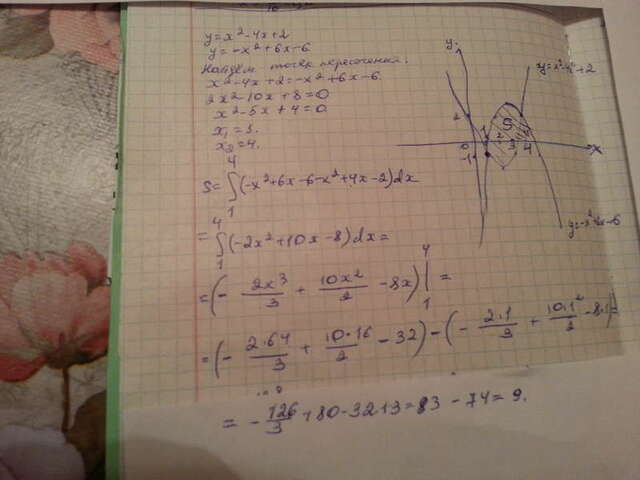 y=x²-4x+2
y=-x²+6x-6
Найдем точки пересечения:
x²-4x+2=-x²+6x-6
2x²-10x+8=0
x²-5x+4=0
x₁=1.
x₂=4.
S=∫₁⁴(-x²+6x-6-x²+4x-2)dx
=∫₁⁴(-2x²+10x-8)dx=
=(-2x³/3+10x²/2-8x)|₁⁴=
=(-2·64/3+10·16/2-32)-(-2·1/3+10·1²/2-8·1)=
=-126/3+80-32+3=83-74=9.
y
y=x²-4x+2
2
S
1
2
3
4
0
-1
x
y=-x²+6x-6